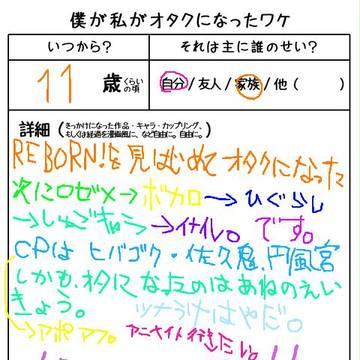 僕が私がオタクになったワケ
いつから？
それは主に誰のせい？
11歳くらいの頃
自分/友人/家族/他（　　　）
詳細（きっかけになった作品・キャラ・カップリング、もしくは経過を漫画風に、など自由に。自由に。）
REBORN!を見はじめてオタクになった
次にロゼメ→ボカロ→ひぐらし
→しゅごキャラ→イナイレ。です。
CPは ヒバゴク・佐久鬼、円風宮
しかも、オタになったのはあねのえい
きょう。ツナうたはやだ。
→アポ アフ。
アニメイト行きたいっ